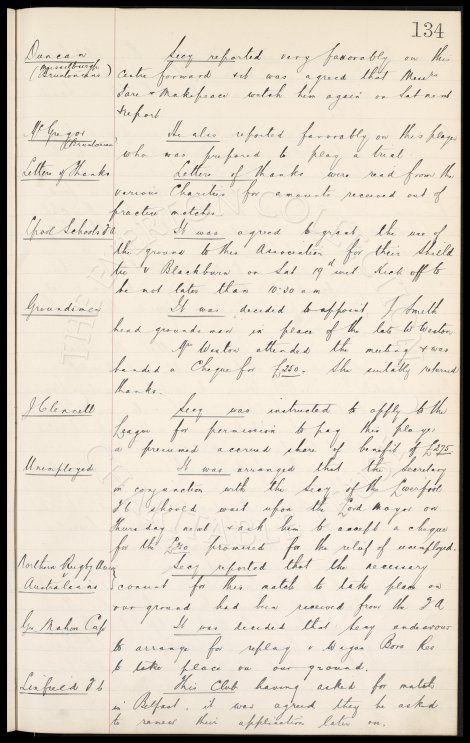 134
Duncan Secy reported very favorably on this
(Musselburgh Bruntonians) Centre forward & it was agreed that Messrs
& Makepeace watch him again on Sat next
& report
McGregor He also reported favorably on this player
who was prepared to play a trial
Letters of Thanks Letters of thanks were read from the
various Charities for amounts received out of
practice matches.
Lpool Schools FA It was agreed to grant the use of
the ground to this Association for their Shield
tie v Blackburn on Sat 19th inst. Kick off to
be not later than 10.30 am
Groundsmen It was decided to appoint J Smith
head groundsman in place of the late W Weston
Mrs Weston attended the meeting & was
handed a Cheque for £250. She suitably returned
thanks.
J Clennell Secy was instructed to apply to the
League for permission to pay this player
a presumed accrued share of benefit of £275
Unemployed It was arranged that the Secretary
in conjunction with the Secy of the Liverpool
Fc should wait upon the Lord Mayor on
Thursday next & ask him to accept a cheque
for the £250 promised for the relief of unemployed.
Northern Rugby Union Secy reported that the necessary
v Australians consent for this match to take place on
our ground had been received from the FA
Geo. Mahon Cup It was decided that Secy endeavour
to arrange for replay v Wigan Boro Res
to take place on our ground.
Linfield Fc This Club having asked for match
in Belfast, it was agreed they be asked
to renew their application later on.